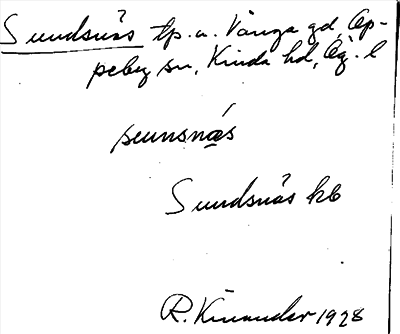 Sundsnäs tp. u. Vänga gd, Op-
peby sn, Kinda hd, Ög. l
sunsnäs
Sundsnäs kb
R. Kinander 1928